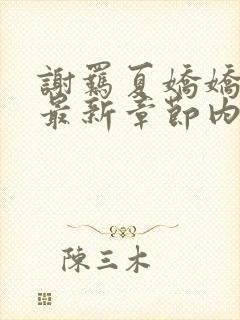 謝羈夏嬌嬌
最新章節內
陳三木